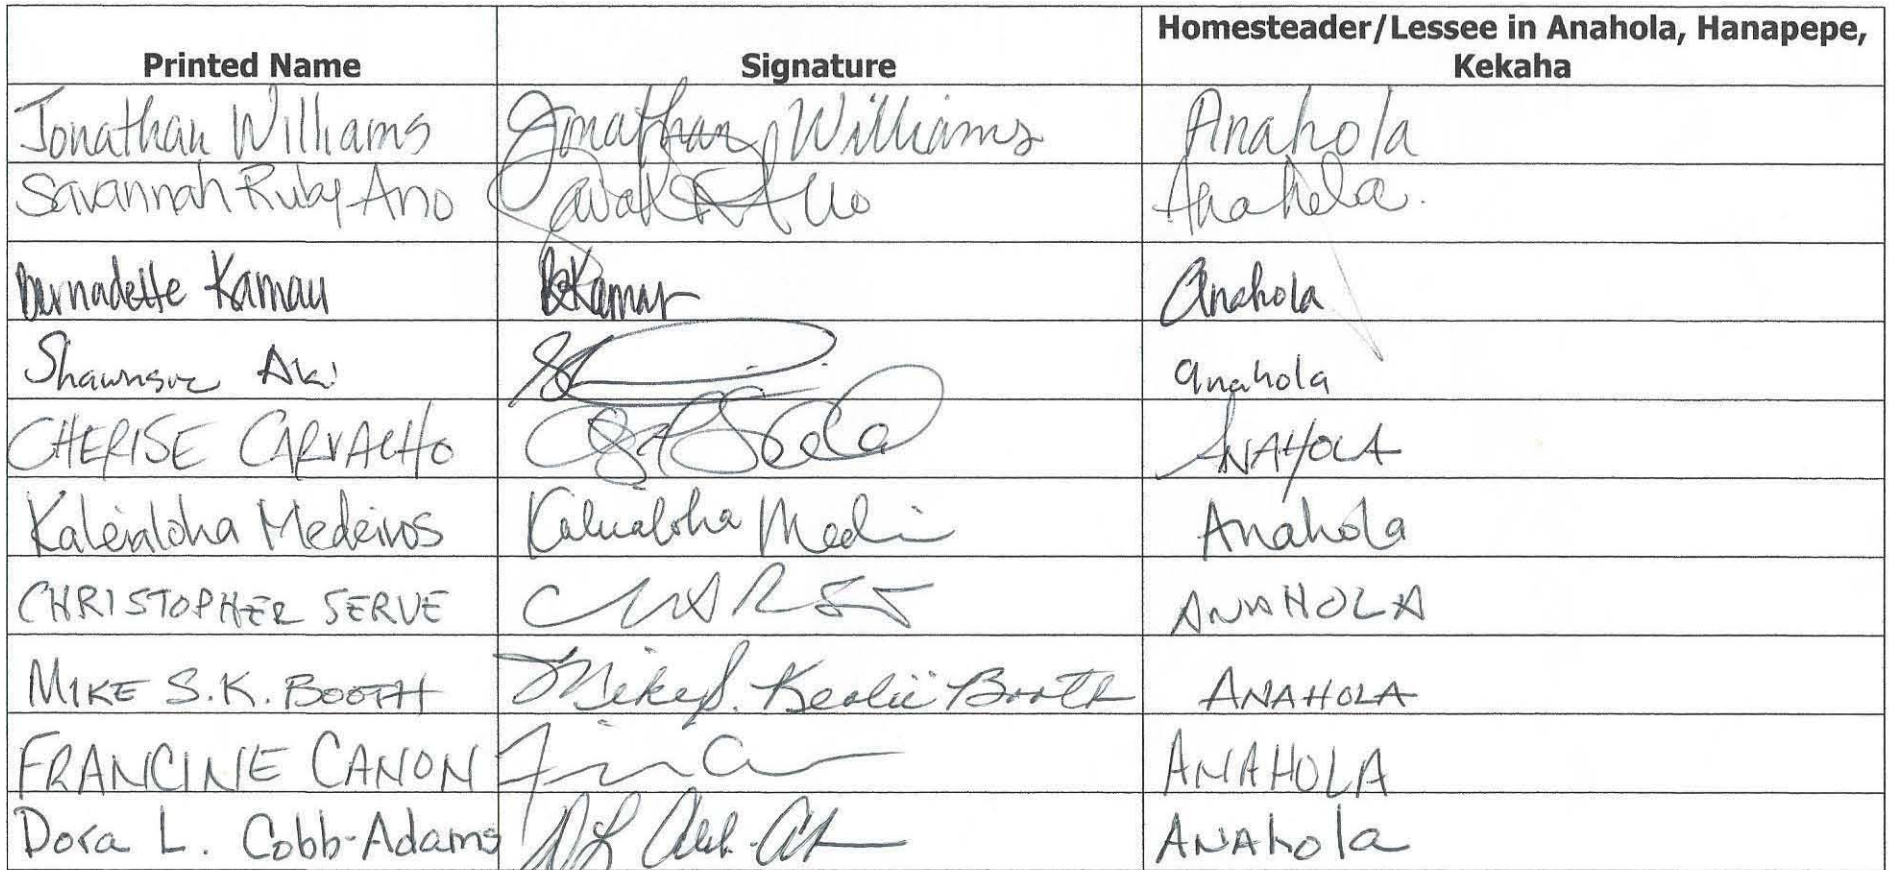 Homesteader/Lessee in Anahola, Hanapepe,
Printed Name Signature Kekaha
Jonathan Williams Jonathan Williams Anahola
Savannah Ruby Ano Anahola.
Bernadette Kamau BKamau Anahola
Aki Anahola
CHERISE CARVALHO ANAHOLA
Kaleialoha Medeiros Kaleialoha Anahola
CHRISTOPHER SERVE ANAHOLA
MIKE S.K. BOOTH Mike S. Kealii Booth ANAHOLA
FRANCINE CANON ANAHOLA
Dora L. Cobb-Adams Anahola